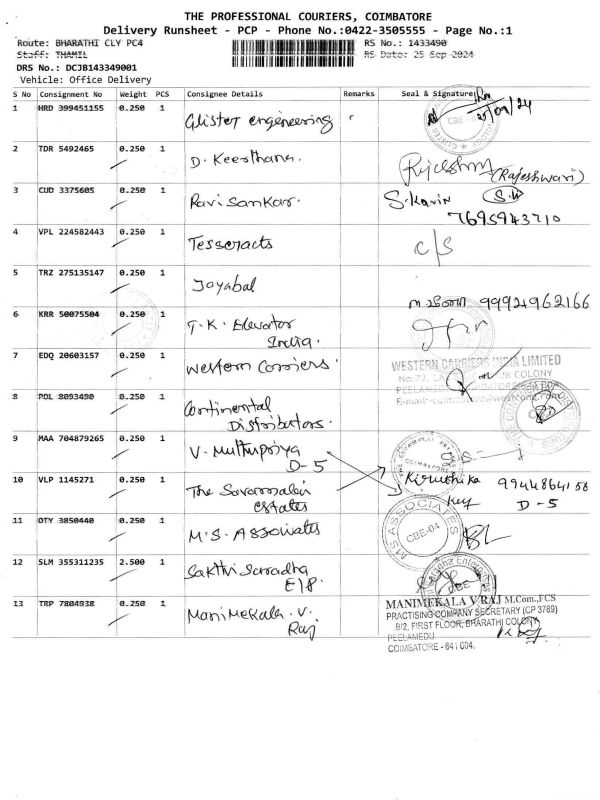 THE PROFESSIONAL COURIERS, COIMBATORE
Delivery Runsheet - PCP - Phone No.:0422-3505555 - Page No.:1
Route: BHARATHI CLY PC4 RS No.: 1433490
Staff: THAMIL RS Date: 25 Sep 2024
DRS No.: DCJB143349001
Vehicle: Office Delivery
S No Consignment No Weight PCS Consignee Details Remarks Seal & Signature
1 HRD 399451155 0.250 1 Glister engineering 25/09/24
2 TDR 5492465 0.250 1 D. Keerthana. (Rajeshwari)
3 CUD 3375605 0.250 1 Ravi Sankar. S. Kavin
7695943710
4 VPL 224582443 0.250 1 Tesseracts c/s
5 TRZ 275135147 0.250 1 Joyabal 99942962166
6 KRR 50075504 0.250 1 T.K. Elevator
India.
7 EDQ 20603157 0.250 1 Western Carriers.
WESTERN CARRIERS INDIA LIMITED
8 POL 8093490 0.250 1 Continental
Distributors.
9 MAA 704879265 0.250 1 V. Muthupriya
D-5
COIMBATORE
10 VLP 1145271 0.250 1 The Savamalai
estates
Kiruthika 9944864158
D-5
11 OTY 3850440 0.250 1 M.S. Associates
M S ASSOCIATES
CBE-04
12 SLM 355311235 2.500 1 Sakthi Saradha
E/P.
13 TRP 7804938 0.250 1 Manimekala. V.
Raj
MANIMEKALA V RAJ M.Com.,FCS
PRACTISING COMPANY SECRETARY (CP 3789)
8/2, FIRST FLOOR, BHARATHI COLONY
PEELAMEDU
COIMBATORE - 641 004.